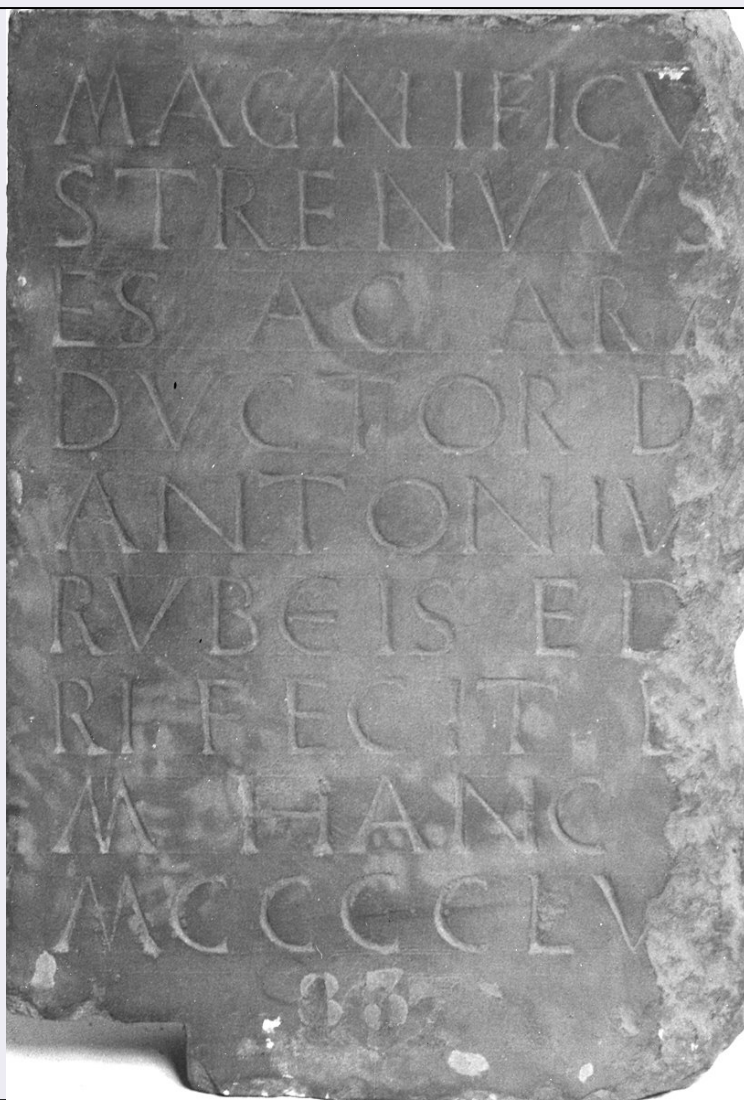 MAGNIFICV
STRENVVS
ES AC ARM
DVCTOR D
ANTONIV
RVBEIS ED
RI FECIT D
M HANC
MCCCCLV
86